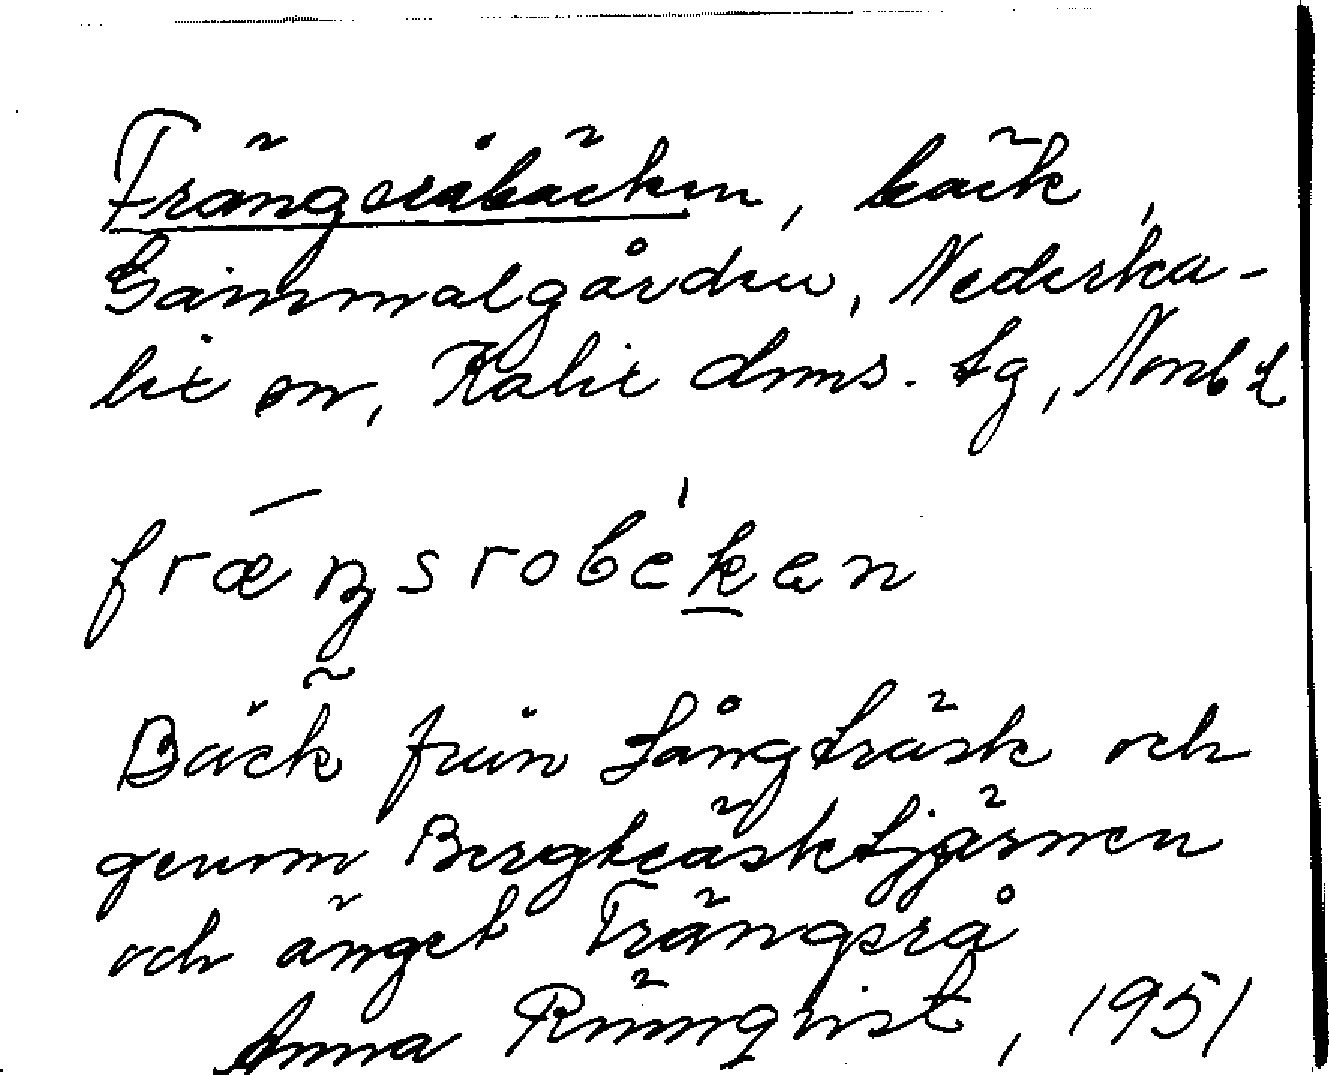 Frängsråbäcken, bäck,
Gammalgården, Nederka-
lix sn, Kalix dms. tg, Norrb l
frængsrobekan
Bäck från Långträsk och
genom Bergträsktjärnen
och änget Frängsrå
Anna Rönnqvist, 1951